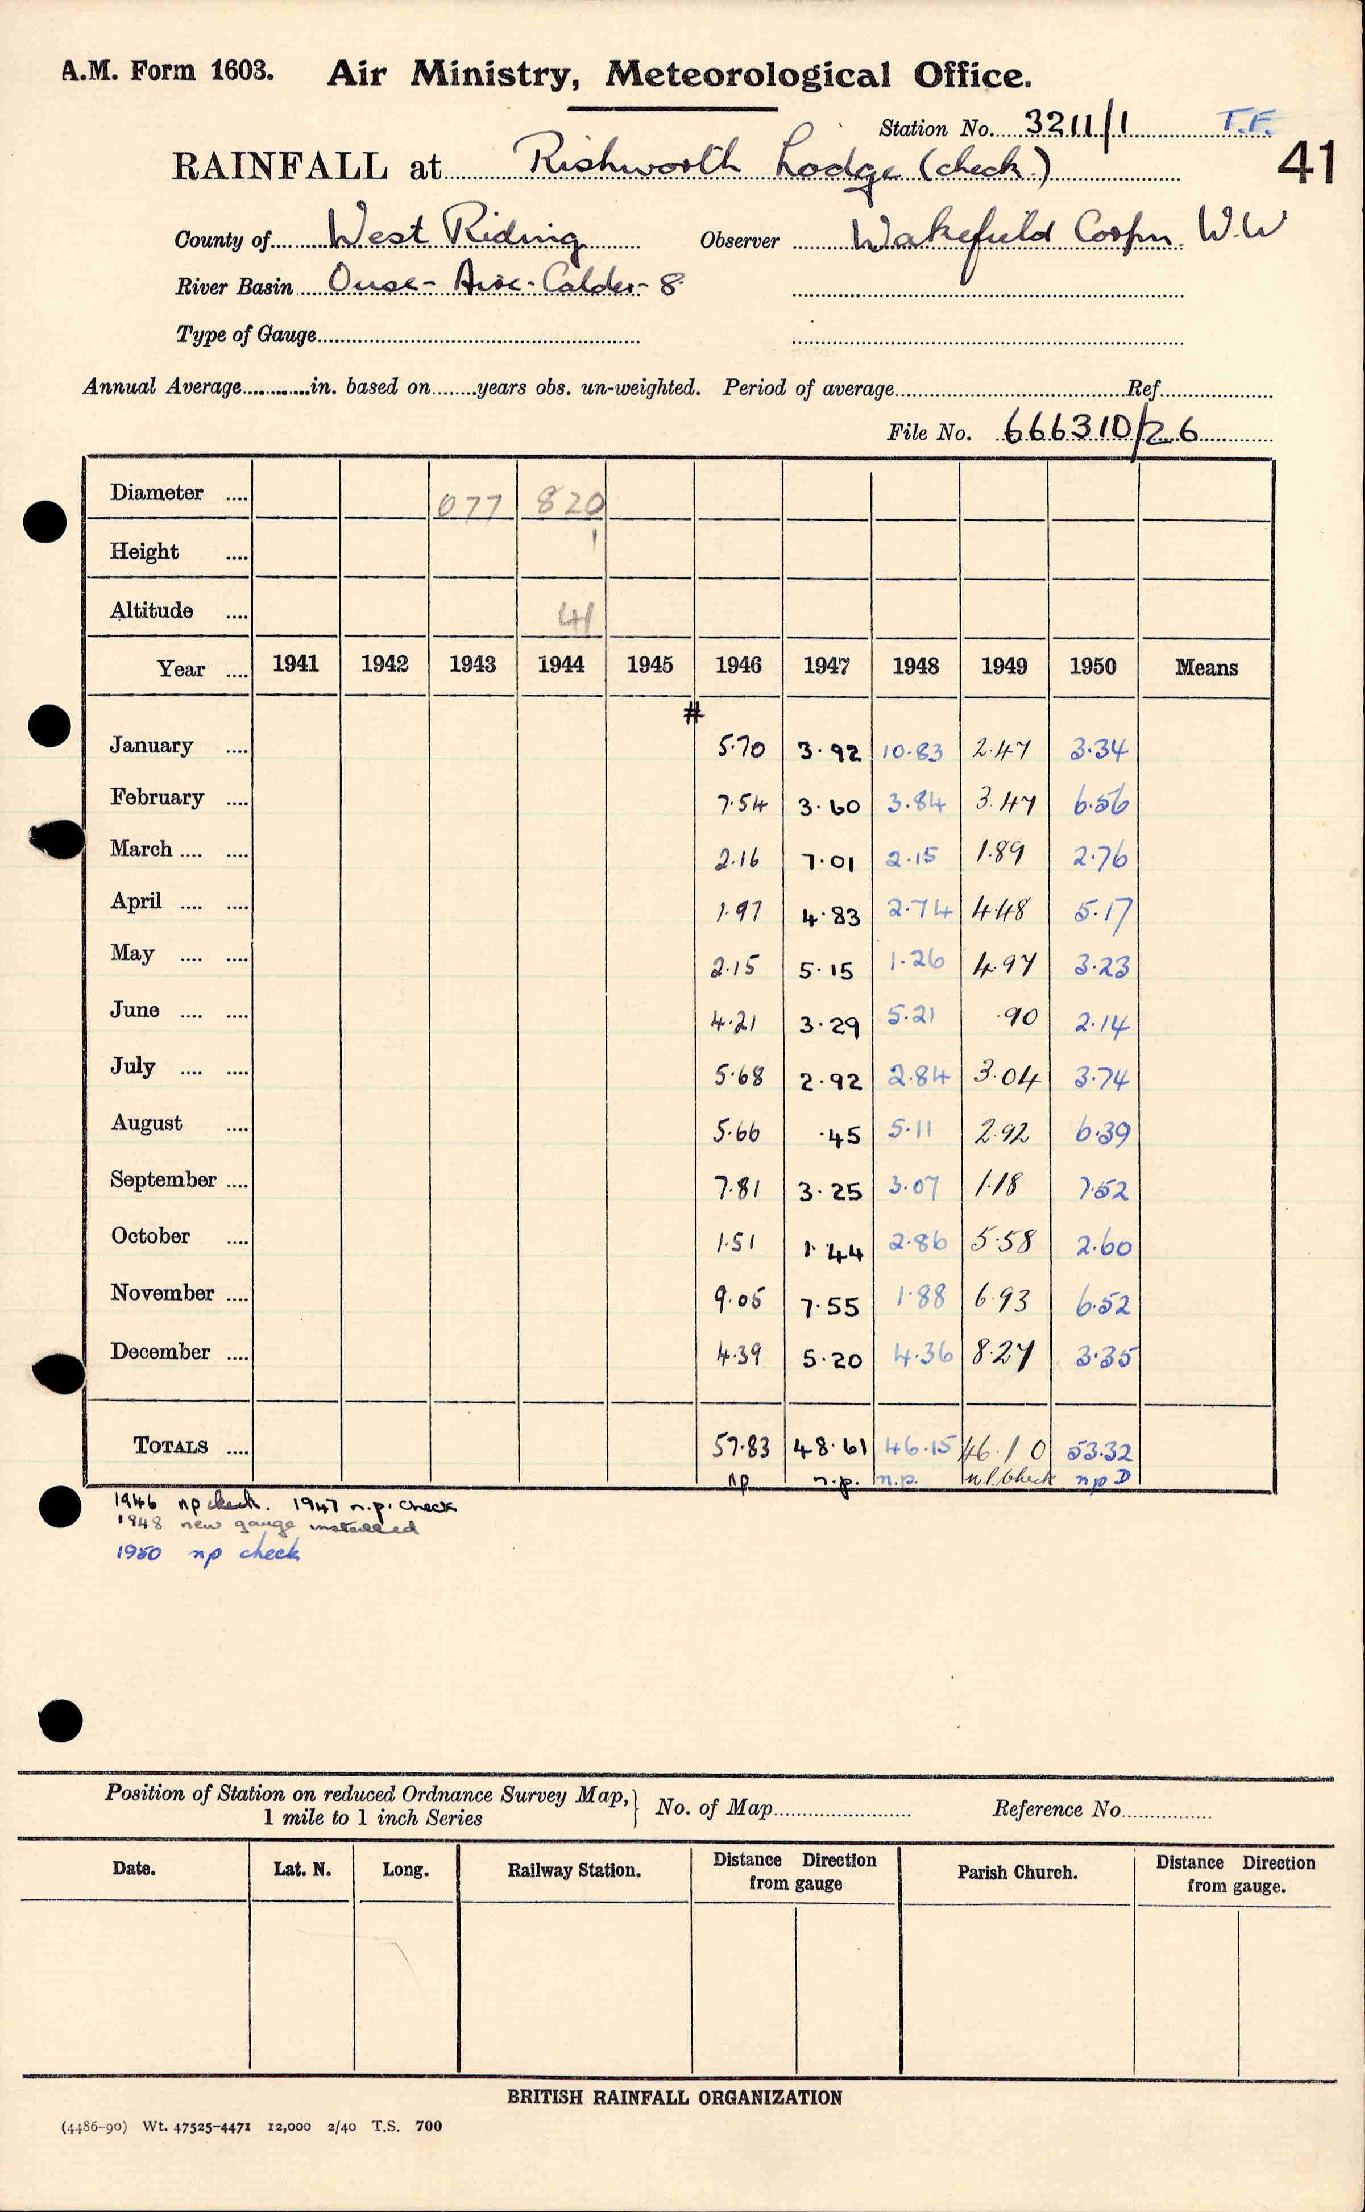 A.M. Form 1603. Air Ministry, Meteorological Office.
Station No. 3211/1 T.F.
41
RAINFALL at Rishworth Lodge (check.)
County of West Riding Observer Wakefield Corpn. W.W
River Basin Ouse - Aire - Calder - 8
Type of Gauge
Annual Average in. based on years obs. un-weighted. Period of average Ref
File No. 666310/26
Diameter .... 077 820
Height .... 1
Altitude .... 41
Year .... 1941 1942 1943 1944 1945 1946 1947 1948 1949 1950 Means
#
January .... 5.70 3.92 10.83 2.47 3.34
February .... 7.54 3.60 3.84 3.47 6.56
March .... .... 2.16 7.01 2.15 1.89 2.76
April .... .... 1.97 4.83 2.74 4.48 5.17
May .... .... 2.15 5.15 1.26 4.97 3.23
June .... .... 4.21 3.29 5.21 .90 2.14
July .... .... 5.68 2.92 2.84 3.04 3.74
August .... 5.66 .45 5.11 2.92 6.39
September .... 7.81 3.25 3.07 1.18 7.52
October .... 1.51 1.44 2.86 5.58 2.60
November .... 9.05 7.55 1.88 6.93 6.52
December .... 4.39 5.20 4.36 8.27 3.35
TOTALS .... 57.83 48.61 46.15 46.10 53.32
np n.p. n.p. check np D
1946 np check. 1947 n.p. check
1948 new gauge installed
1950 np check
Position of Station on reduced Ordnance Survey Map,} No. of Map Reference No.
1 mile to 1 inch Series
Date. Lat. N. Long. Railway Station. Distance Direction from gauge Parish Church. Distance Direction from gauge.
BRITISH RAINFALL ORGANIZATION
(4486-90) Wt. 47525-4471 12,000 2/40 T.S. 700